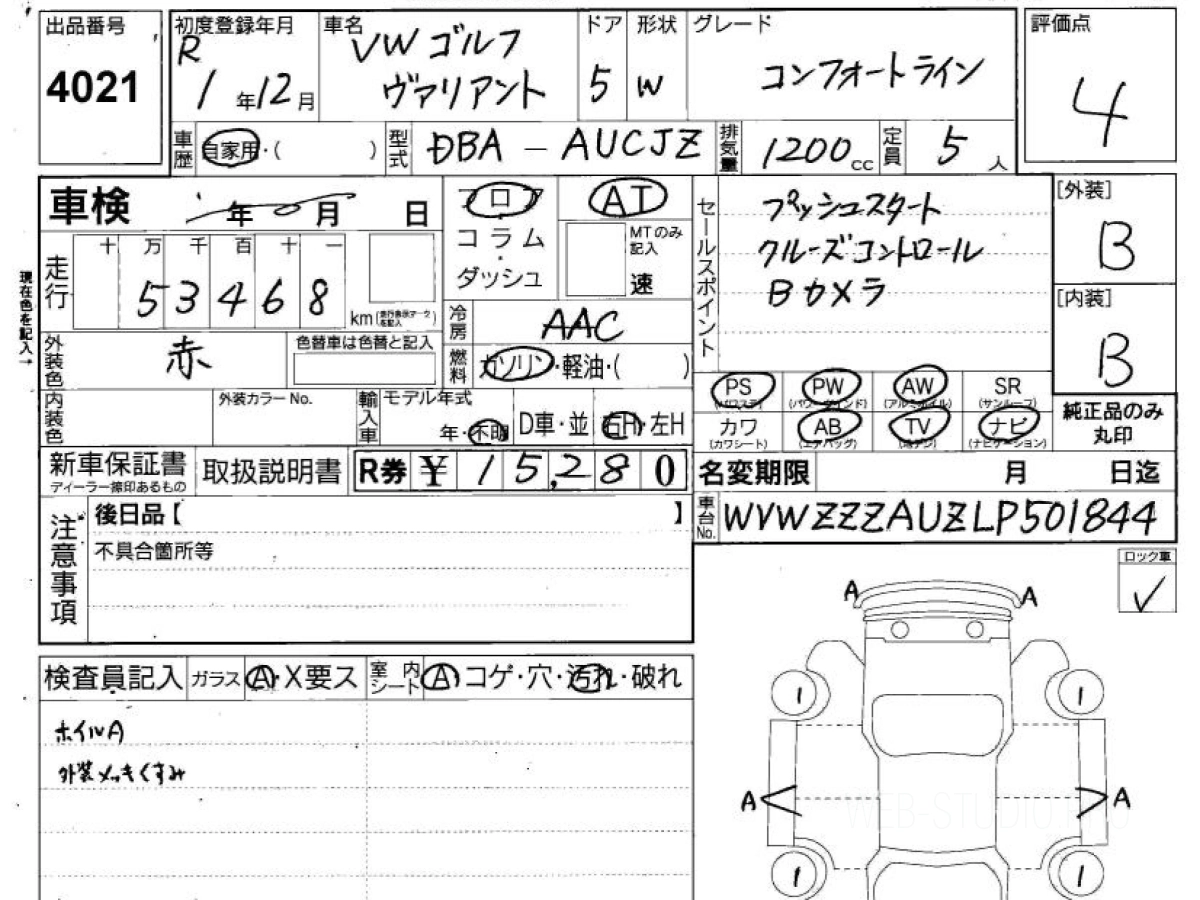 出品番号
4021
初度登録年月
R
1年12月
車名
VW ゴルフ
ヴァリアント
ドア
5
形状
W
グレード
コンフォートライン
評価点
4
車歴
自家用・( )
型式
DBA - AUCJZ
排気量
1200cc
定員
5人
車検
年 月 日
フロア
コラム
・
ダッシュ
AT
MTのみ
記入
速
セールスポイント
プッシュスタート
クルーズコントロール
Bカメラ
[外装]
B
[内装]
B
現在色を記入→
走行
十 万 千 百 十 一
5 3 4 6 8
km
冷房
AAC
燃料
ガソリン・軽油・( )
外装色
赤
色替車は色替と記入
内装色
外装カラーNo.
輸入車
モデル年式
年・不明
D車・並
右H・左H
PS
(パワステ)
PW
(パワーウインド)
AW
(アルミホイル)
SR
(サンルーフ)
カワ
(カワシート)
AB
(エアバッグ)
TV
ナビ
(ナビゲーション)
純正品のみ
丸印
新車保証書
ディーラー捺印あるもの
取扱説明書
R券 ¥ 15,280
名変期限 月 日迄
車台No.
WVWZZZAUZLP501844
注意事項
後日品【 】
不具合箇所等
ロック車
✓
検査員記入
ガラス
A・X要ス
室内シート
A・コゲ・穴・汚れ・破れ
ホイルA
外装メッキくすみ
A
A
1
1
A
A
1
1
WEB-STUDIO.PRO